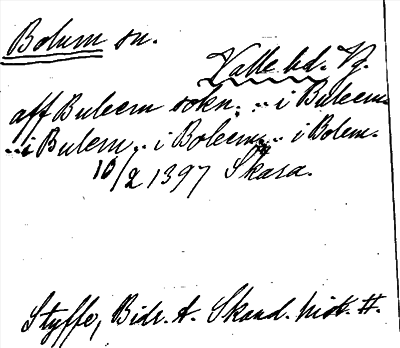 Bolum sn.
Valle hd. Vg.
aff Buleem sokn. .. i Buleem.
.. i Bulem .. i Boleem .. i Bolem.
10/2 1397 Skara.
Styffe, Bidr. t. Skand. hist. II.